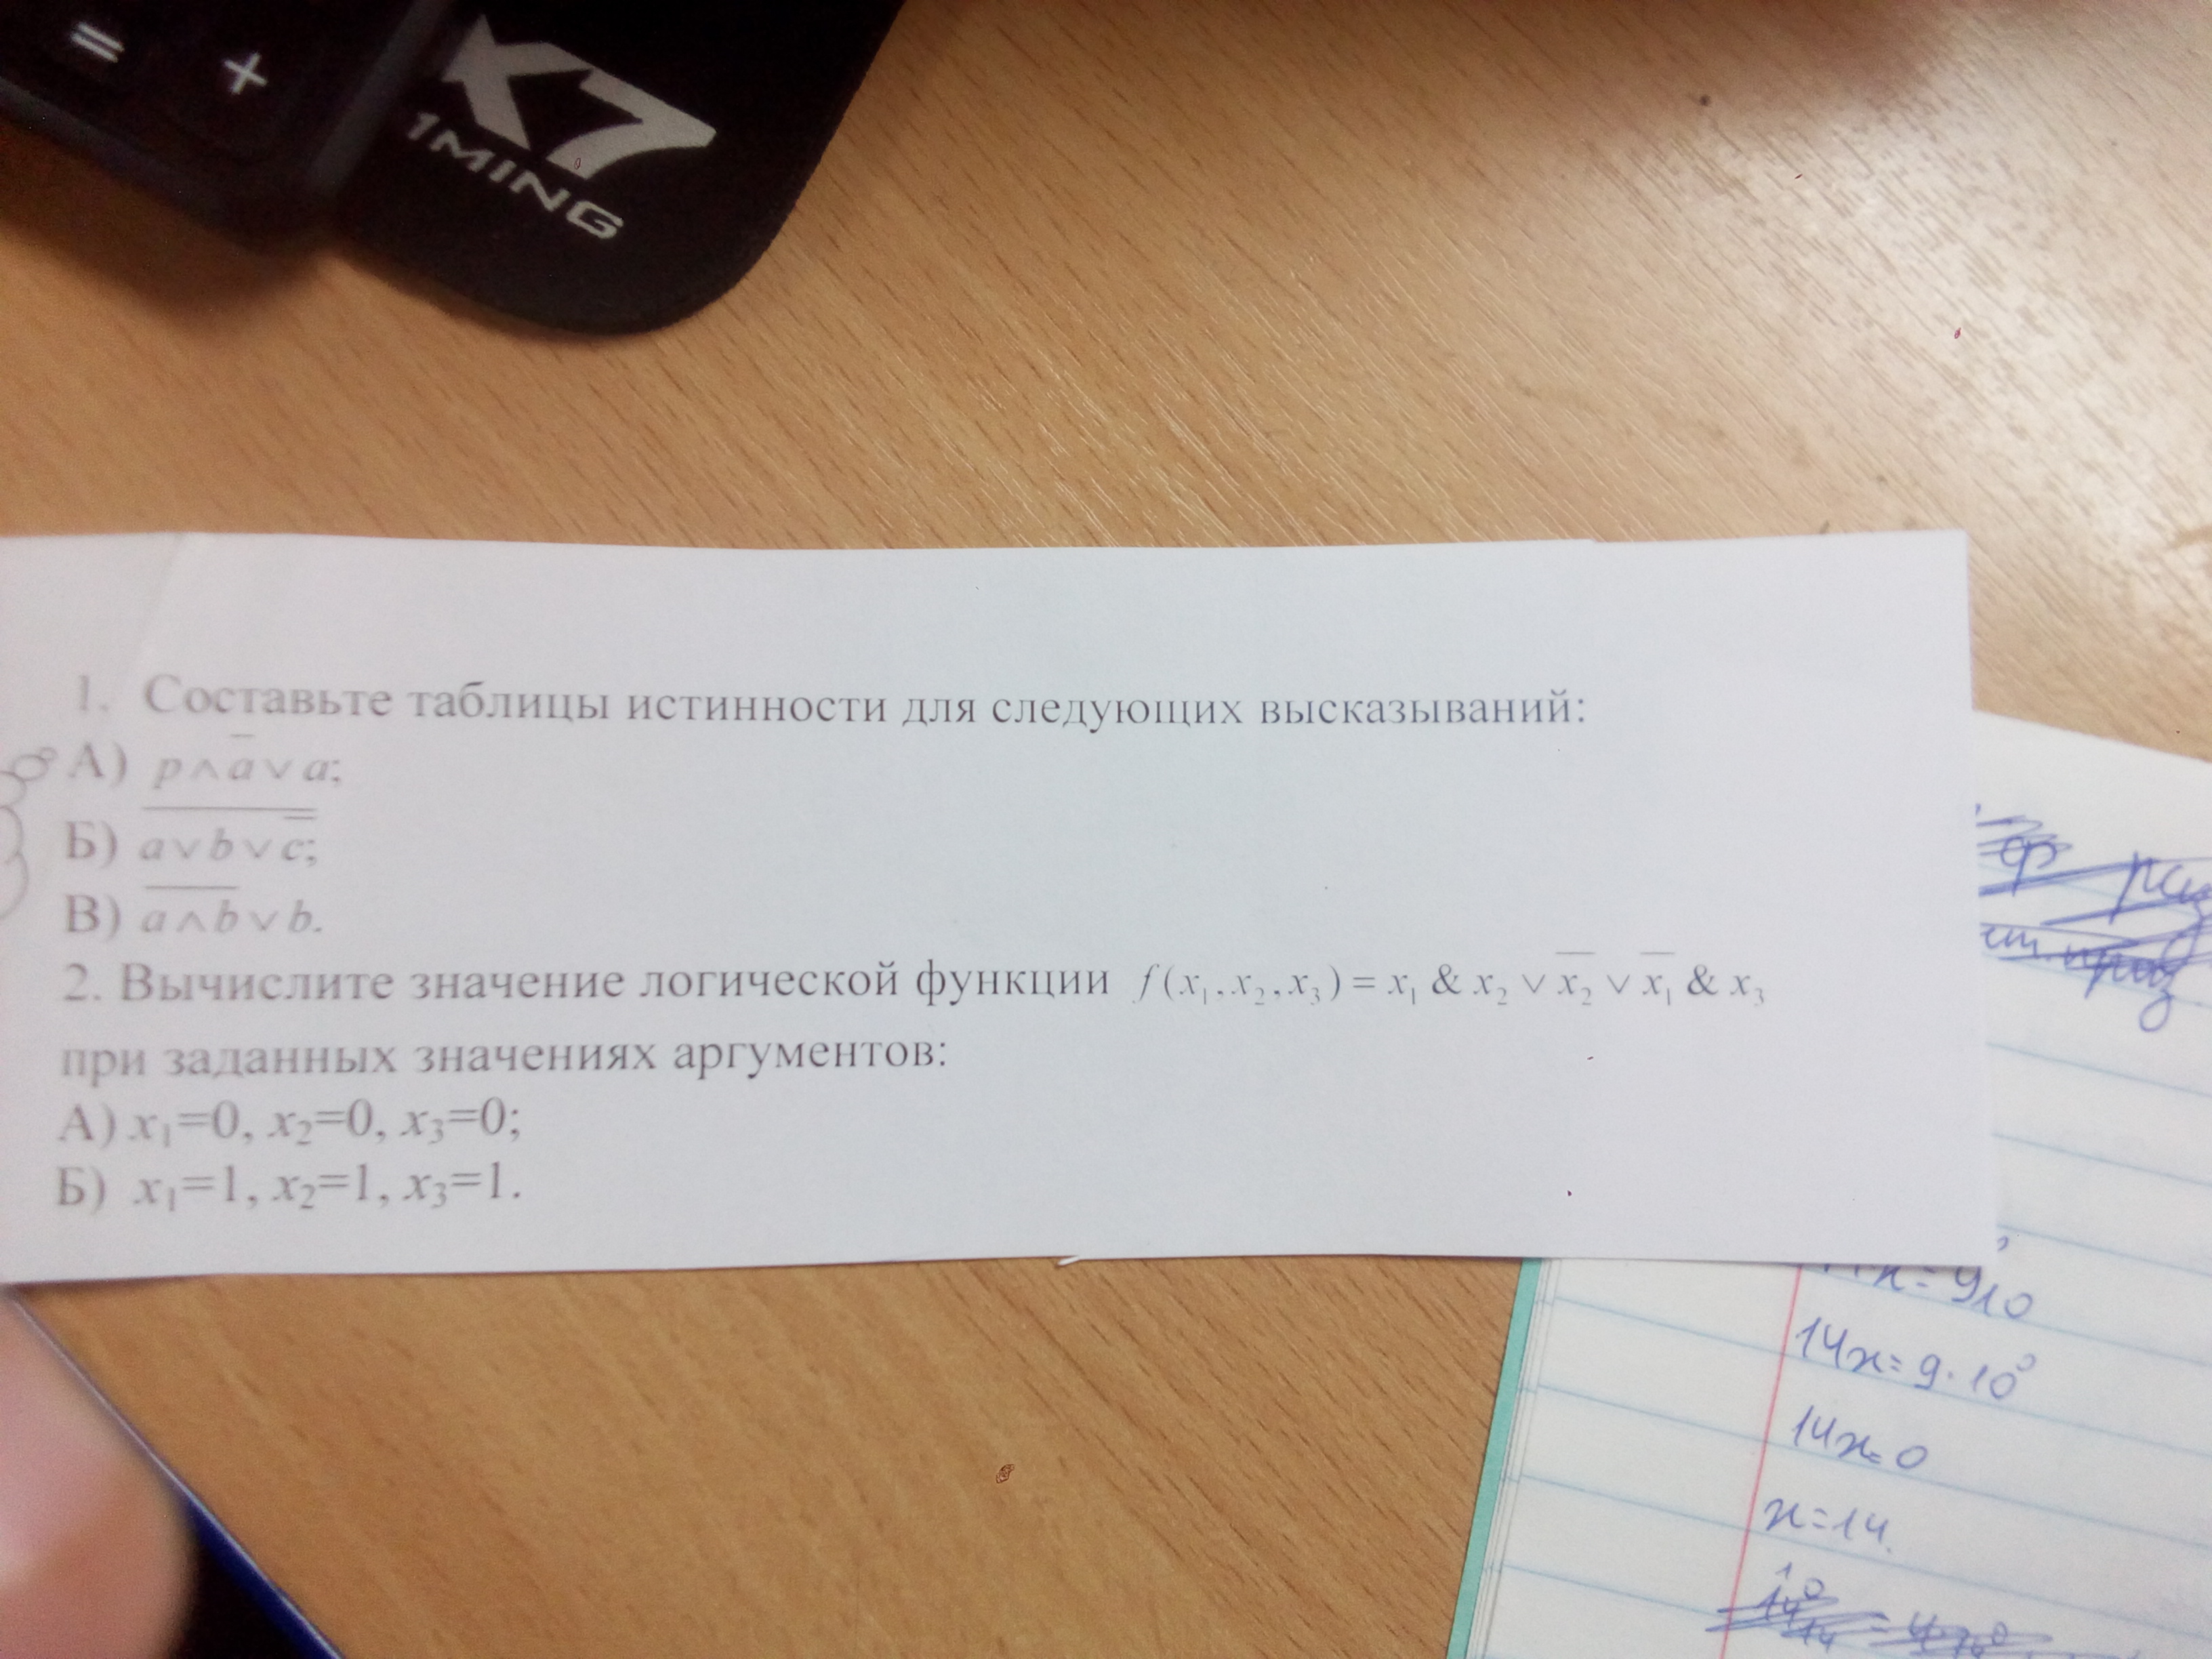 = +
K7
1MING
1. Составьте таблицы истинности для следующих высказываний:
А) p ∧ a̅ ∨ a;
Б) \overline{a ∨ b ∨ \overline{\overline{c}}};
В) \overline{a ∧ b} ∨ b.
2. Вычислите значение логической функции f(x₁, x₂, x₃) = x₁ & x₂ ∨ \overline{x₂} ∨ \overline{x₁} & x₃
при заданных значениях аргументов:
А) x₁=0, x₂=0, x₃=0;
Б) x₁=1, x₂=1, x₃=1.
14x = 9·10⁰
14x = 0
x = 14.